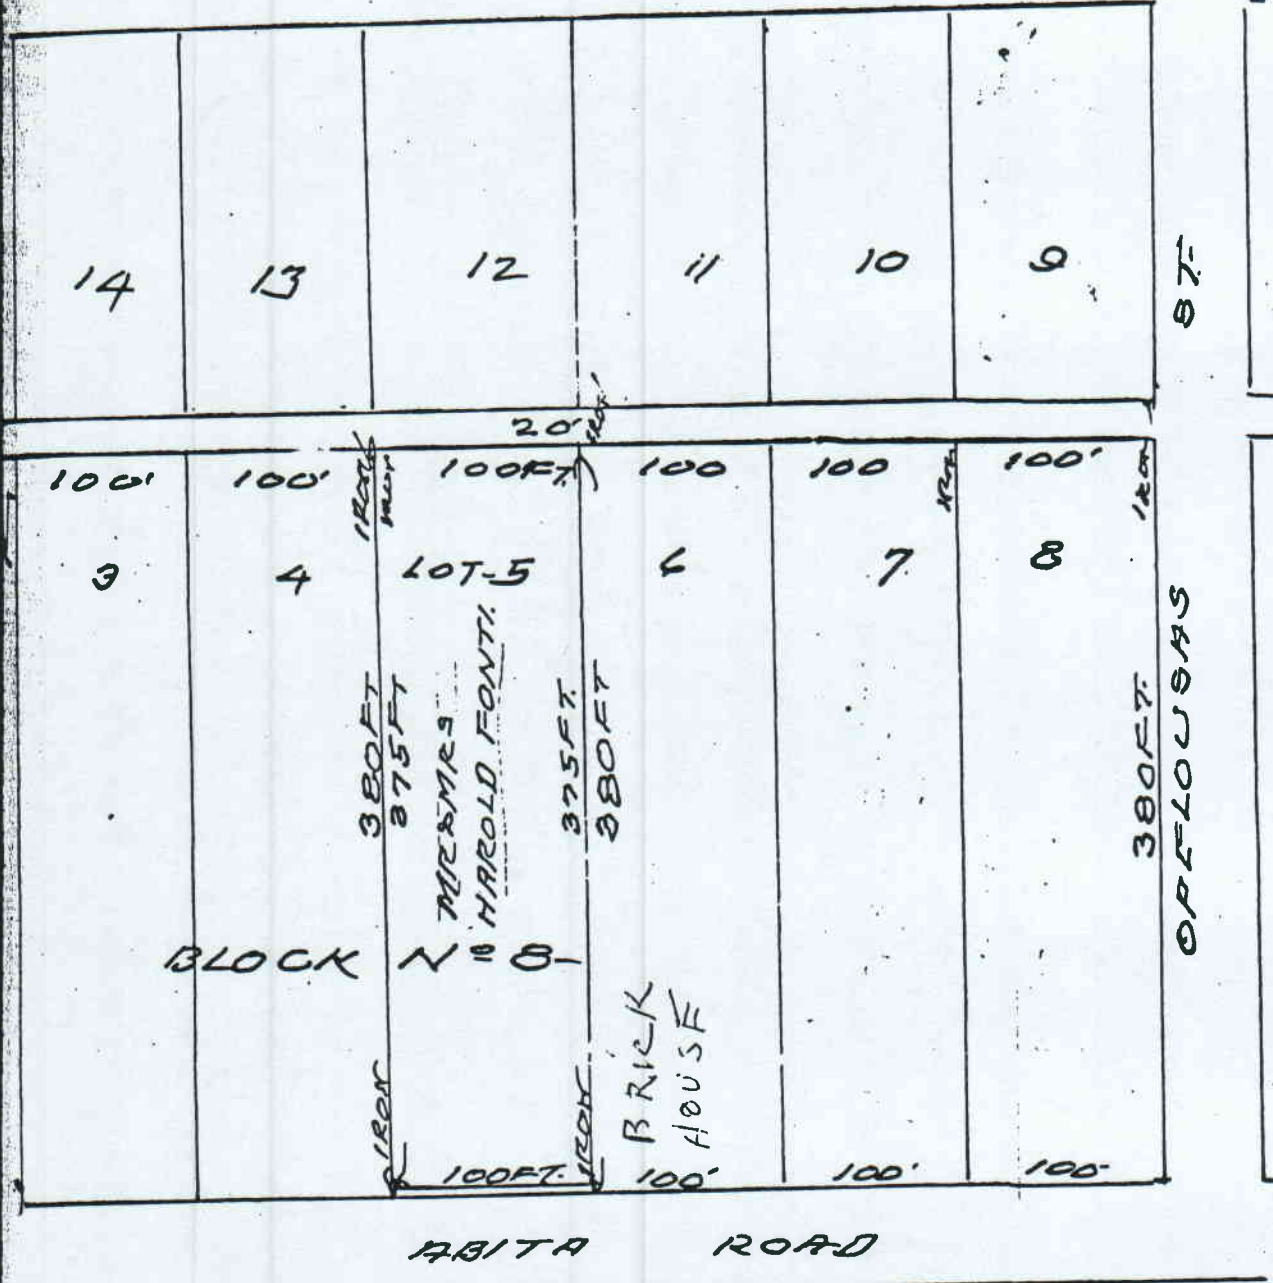 14 13 12 11 10 9
ST.
20'
IRON
100' 100' 100FT. 100 100 100'
IRON
IRON
IRON
3 4 LOT-5 6 7 8
380FT
375FT
MR & MRS
HAROLD FONTI.
375FT.
380FT
380FT.
OPELOUSAS
BLOCK Nº 8-
BRICK
HOUSE
IRON
IRON
100FT. 100' 100' 100'
ABITA ROAD